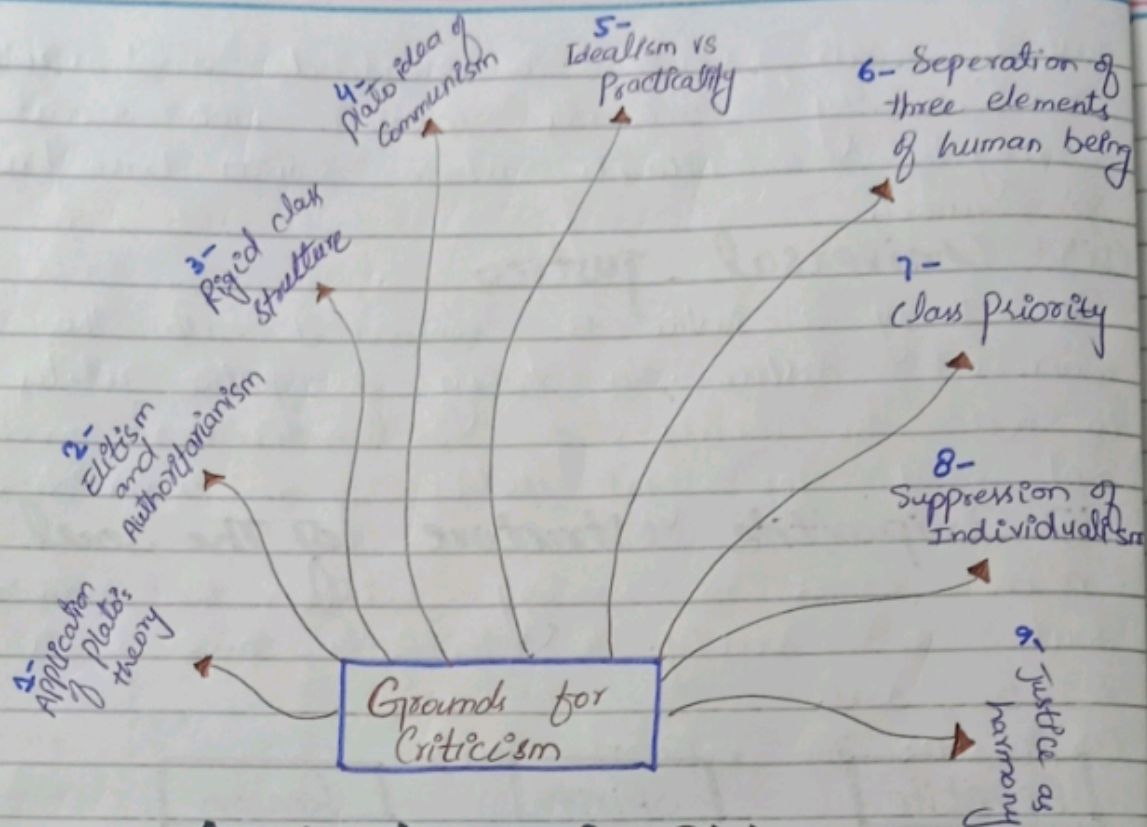 1-
Application
of Plato's
theory
2-
Elitism
and
Authoritarianism
3-
Rigid class
structure
4-
Plato idea of
Communism
5-
Idealism vs
Practicality
6- Seperation of
three elements
of human being
7-
Class Priority
8-
Suppression of
Individualism
9- Justice as
harmony
Grounds for
Criticism